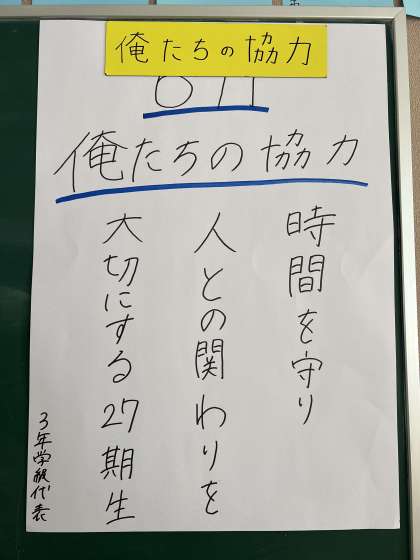 俺たちの協力
俺たちの協力
時間を守り
人との関わりを
大切にする27期生
3年学級代表